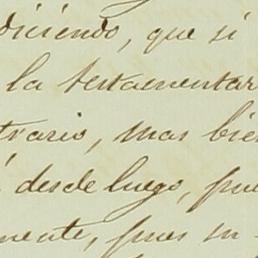 diciendo, que si
la testamentar
trario, mas bien
desde luego, pue
mente, pues su